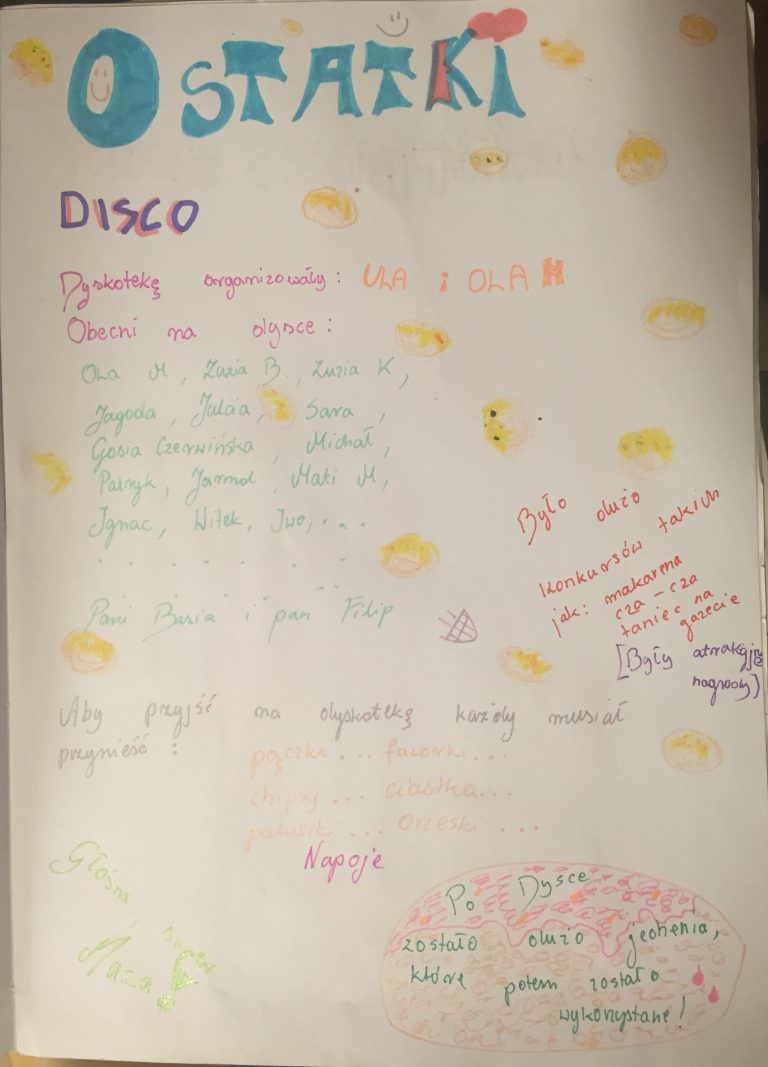 OSTATKI
DISCO
Dyskotekę organizowały: ULA i OLA H
Obecni na dysce:
Ola M, Zuzia B., Zuzia K,
Jagoda, Julcia, Sara,
Gosia Czerwińska, Michał,
Patryk, Jarmol, Mati M,
Ignac, Witek, Iwo, . . .
Pani Basia i pan Filip
Było dużo
konkursów takich
jak: makarena
cza-cza
taniec na
gazecie
[Były atrakcyjne
nagrody)
Aby przyjść na dyskotekę każdy musiał
przynieść:
pączki... faworki...
chipsy... ciastka...
paluszki... orzeski...
Napoje
Głośna
Muza
Po Dysce
zostało dużo jedzenia,
które potem zostało
wykorzystane!